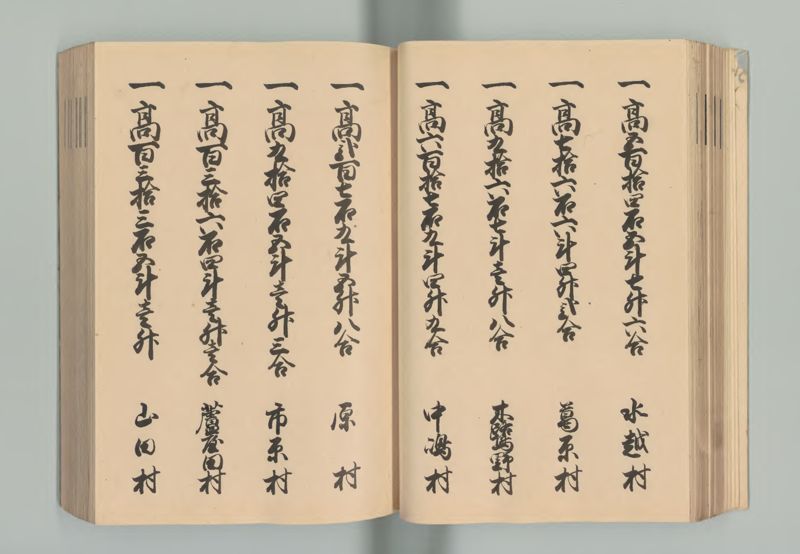 一高五百拾四石五斗七升六合 水越村
一高七拾六石六斗四升弐合 葛原村
一高九拾六石七斗壱升八合 野村
一高六百拾七石九斗四升九合 中嶋村
一高弐百七石九斗五升八合 原村
一高九拾四石五斗壱升三合 市原村
一高百三拾六石四斗壱升壱合 蘆屋田村
一高百三拾三石五斗壱升 山田村